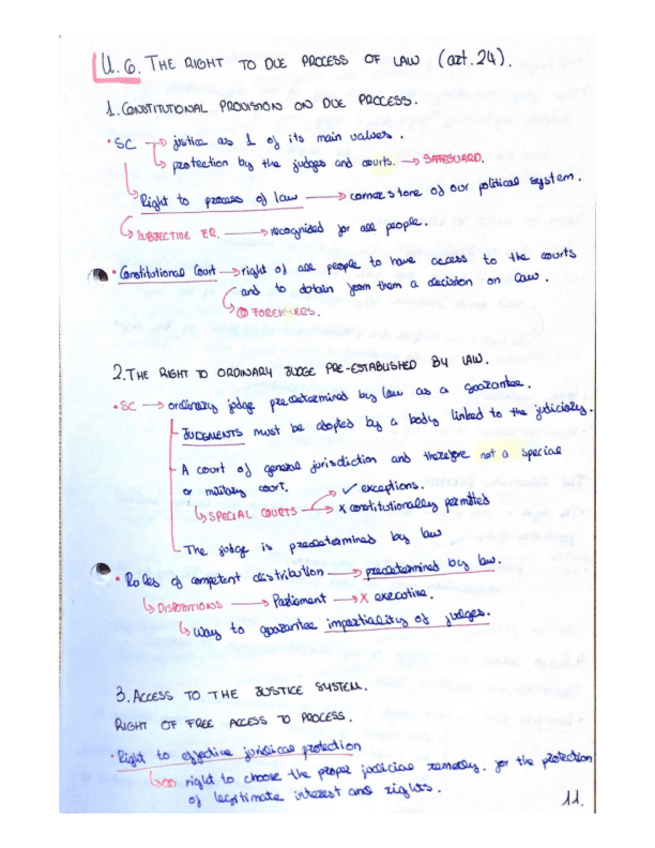 U.6. THE RIGHT TO DUE PROCESS OF LAW (art.24).
1. CONSTITUTIONAL PROVISION ON DUE PROCESS.
• SC → justice as 1 of its main values.
↳ protection by the judges and courts. → SAFEGUARD.
↳ Right to process of law → cornerstone of our political system.
↳ SUBJECTIVE F.R. → recognized for all people.
• Constitutional Court → right of all people to have access to the courts
and to obtain from them a decision on law.
↳ FOREIGNERS.
2. THE RIGHT TO ORDINARY JUDGE PRE-ESTABLISHED BY LAW.
• SC → ordinary judge predetermined by law as a guarantee.
- JUDGMENTS must be adopted by a body linked to the judiciary.
- A court of general jurisdiction and therefore not a special
or military court. ✓ exceptions.
↳ SPECIAL COURTS → x constitutionally permitted
- The judge is predetermined by law
• Roles of competent distribution → predetermined by law.
↳ DISPOSITIONS → Parliament → X executive.
↳ Way to guarantee impartiality of judges.
3. ACCESS TO THE JUSTICE SYSTEM.
RIGHT OF FREE ACCESS TO PROCESS.
• Right to effective juridical protection
↳ right to choose the proper judicial remedy. for the protection
of legitimate interest and rights.
11.